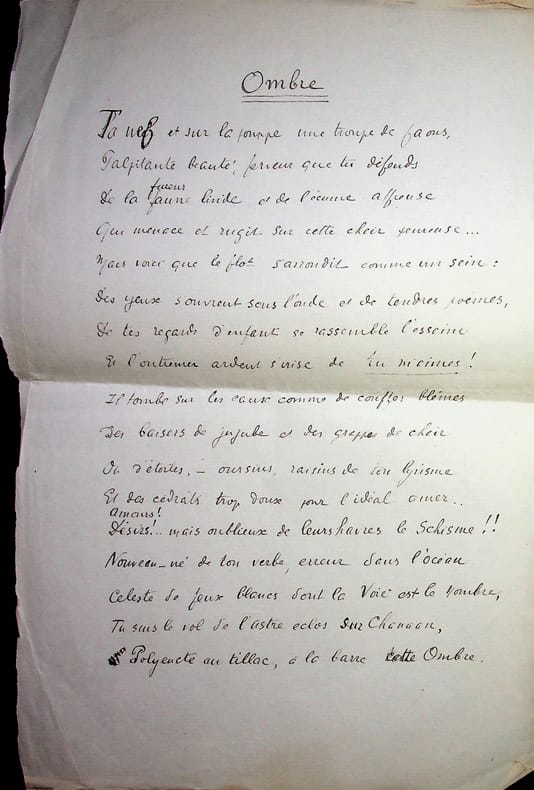 Ombre
Ta nef et sur la pouppe une troupe de faons,
Palpitante beauté, ferveur que tu défends
fureur
De la faune livide et de l'écume affreuse
Qui menace et rugit sur cette chair peureuse...
Mais voici que le flot s'arrondit comme un sein :
Des yeux s'ouvrent sous l'onde et de tendres poèmes,
De tes regards d'enfant se rassemble l'essaim
Et l'outremer ardent s'irise de tu m'aimes !
Il tombe sur les eaux comme de couffes blêmes
Des baisers de jujube et des grappes de chair
Ou d'étoiles, – oursins, raisins de ton lyrisme
Et des cédrats trop doux pour l'idéal amer..
Amours!
Désirs!.. mais oublieux de leurs havres le Schisme !!
Nouveau-né de ton verbe, erreur dans l'océan
Céleste de feux blancs dont la Voie est le Nombre,
Tu suis le vol de l'astre éclos sur Chanaan,
Polyeucte au tillac, à la barre cette Ombre.